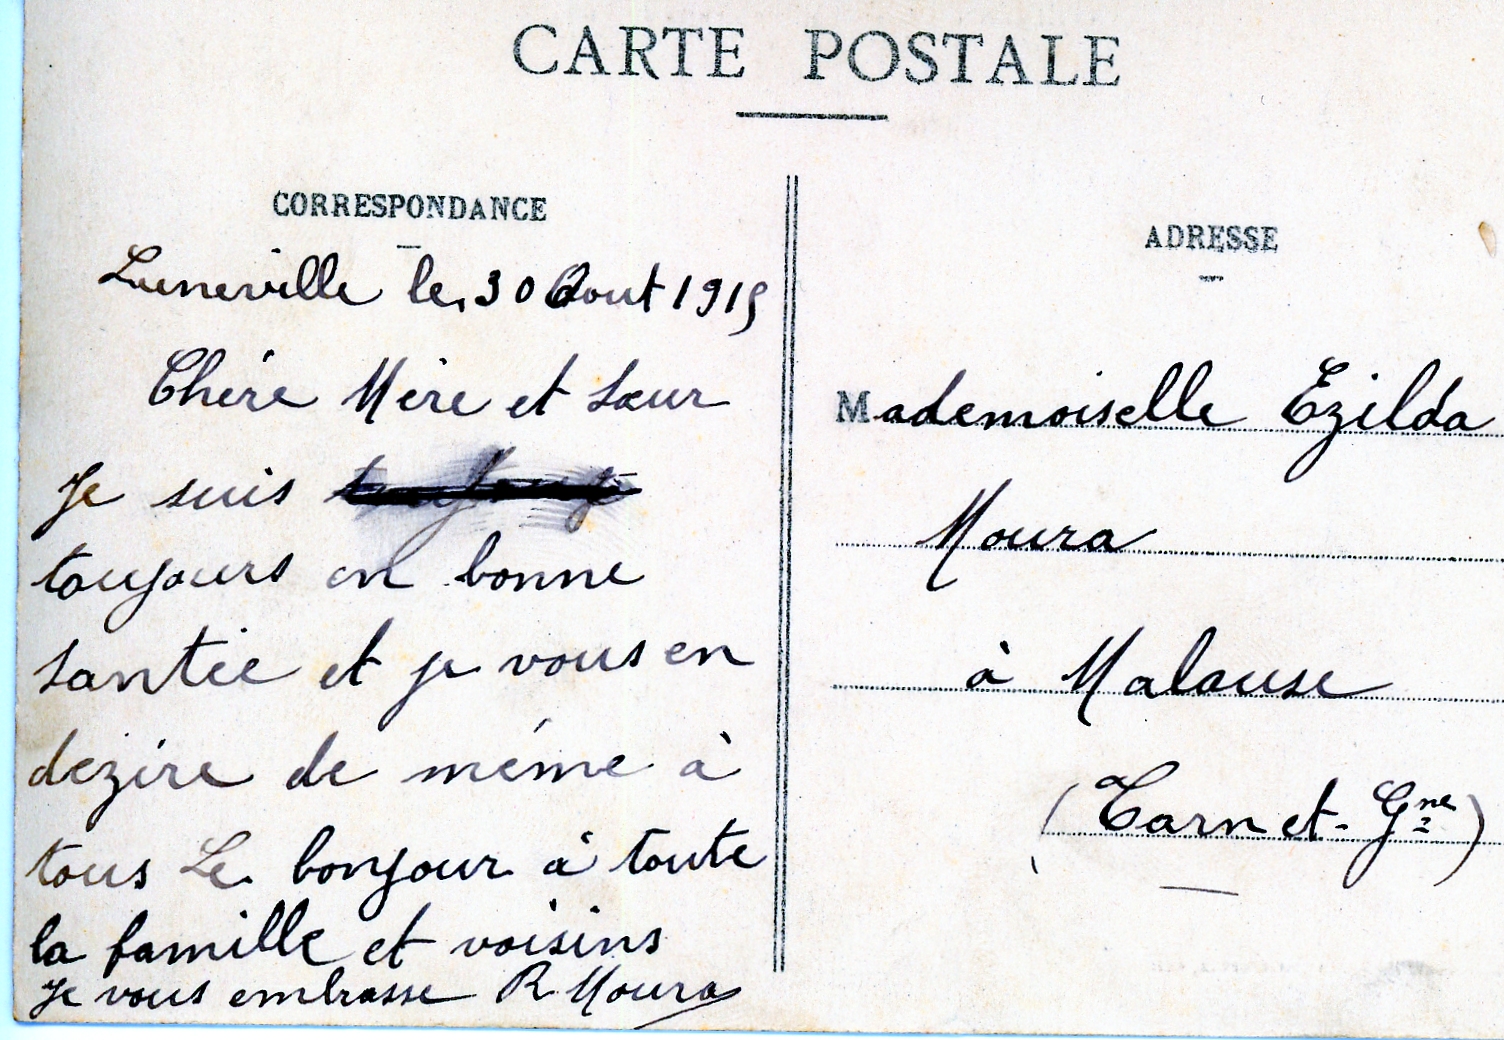 CARTE POSTALE
CORRESPONDANCE
Luneville le, 30 Aout 1915
Chére Mére et Sœur
Je suis
toujours en bonne
santée et je vous en
dezire de méme à
tous Le bonjour à toute
la famille et voisins
Je vous embrasse R Moura
ADRESSE
Mademoiselle Ezilda
Moura
à Malause
(Tarn et-Gne)